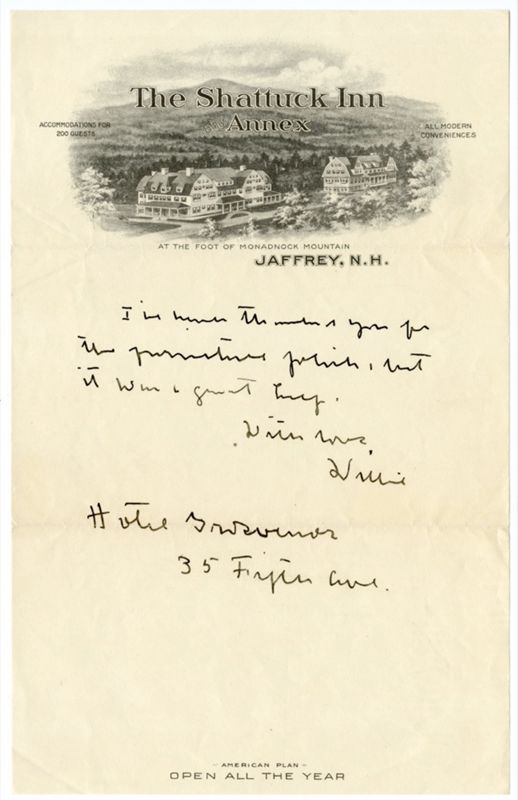 The Shattuck Inn
and Annex
ACCOMMODATIONS FOR
200 GUESTS
ALL MODERN
CONVENIENCES
AT THE FOOT OF MONADNOCK MOUNTAIN
JAFFREY, N.H.
I've never thanked you for
the furniture polish, but
it was a great help.
With love
Willie
Hotel Grosvenor
35 Fifth Ave.
- AMERICAN PLAN -
OPEN ALL THE YEAR